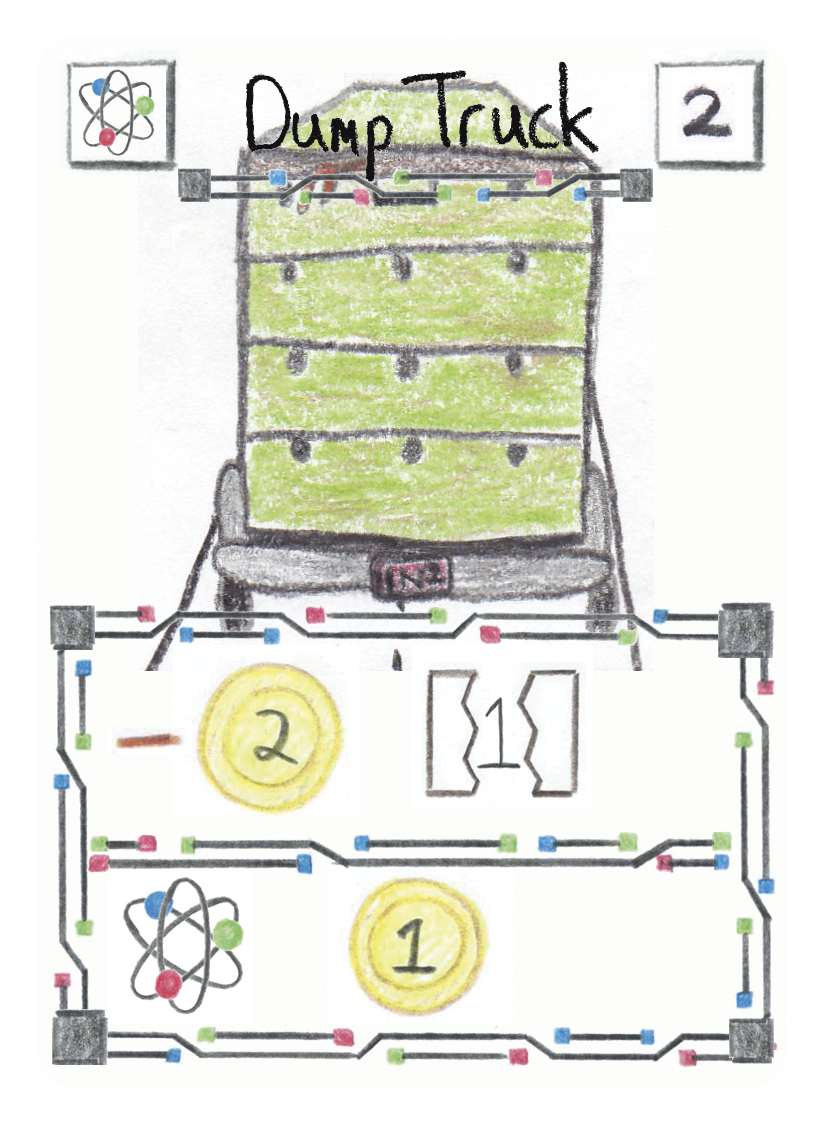 Dump Truck
2
1N2
2
1
1